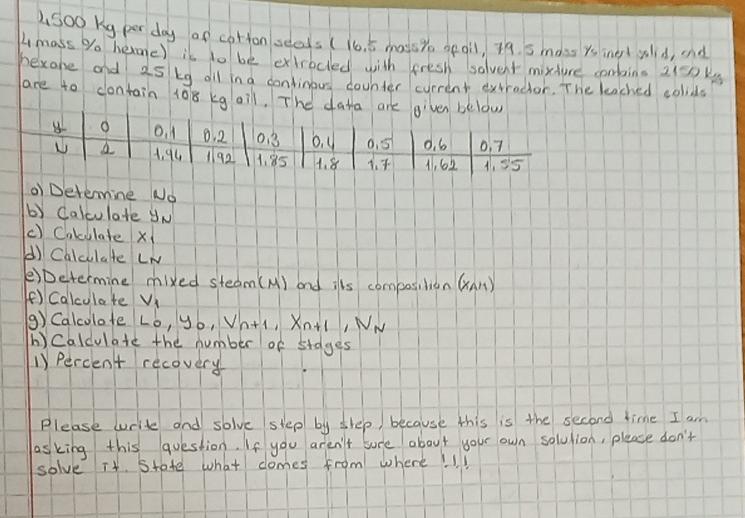 4500 kg per day of cotton seeds ( 16.5 mass% of oil, 79.5 mass % inert solid, and
4 mass % hexane) is to be extracted with fresh solvent mixture contains 2150 kg
hexane and 25 kg oil in a continous counter current extractor. The leached solids
are to contain 108 kg oil. The data are given below
y 0 0,1 0,2 0,3 0,4 0,5 0,6 0,7
N 2 1,94 1,92 1,85 1,8 1,7 1,62 1,55
a) Determine No
b) Calculate yN
c) Calculate x1
d) Calculate LN
e) Determine mixed steam(M) and its composition (XAM)
f) Calculate V1
g) Calculate Lo, yo, Vn+1, Xn+1, NN
h) Calculate the number of stages
i) Percent recovery
Please write and solve step by step, because this is the second time I am
asking this question. If you aren't sure about your own solution, please don't
solve it. State what comes from where !!!